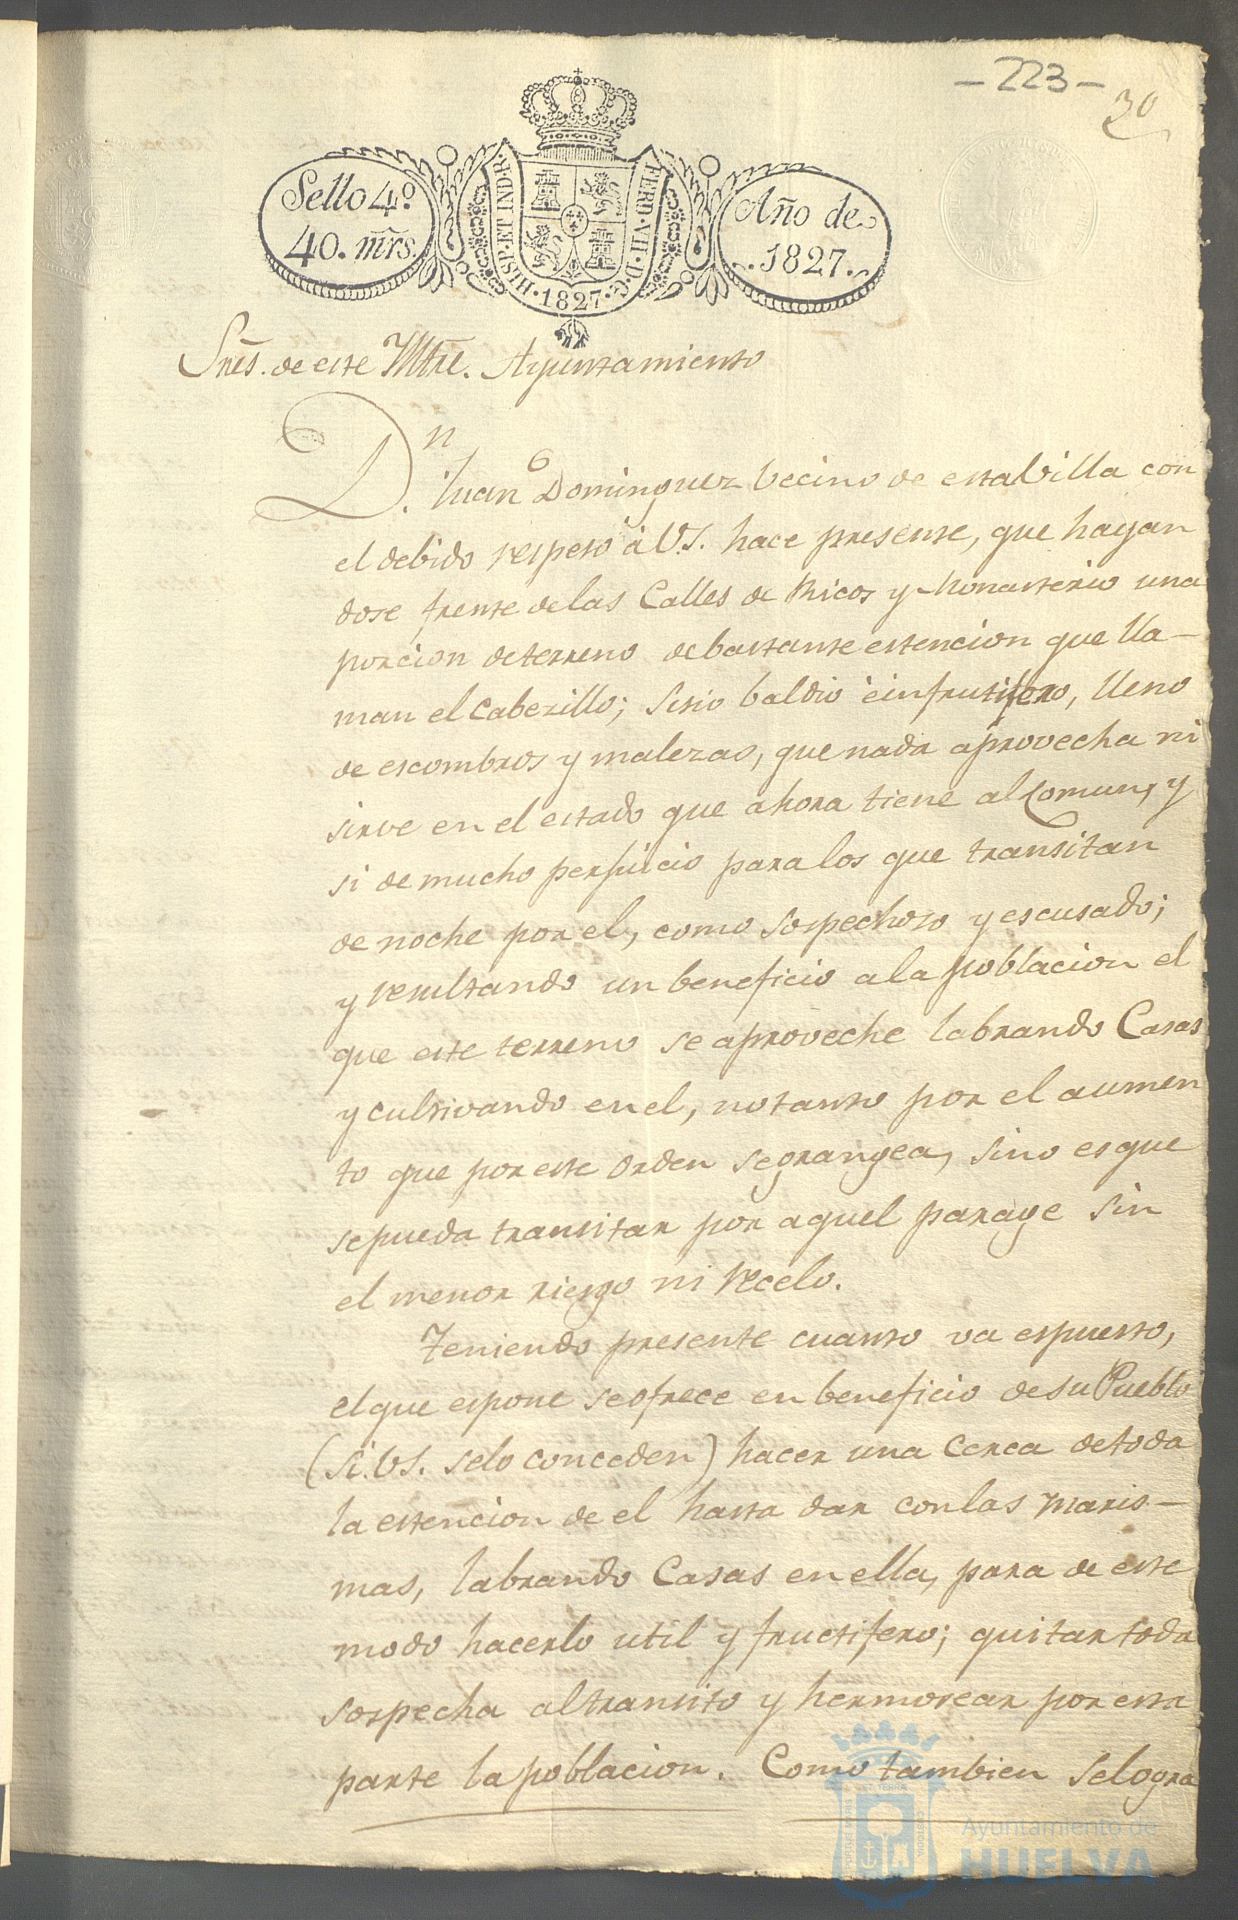 - 223 -
30
Sello 4º
40. mrs.
HISP. ET IND. R.
FERD. VII. D. G.
1827
Año de
1827.
Sres. de este Iltre. Ayuntamiento
Dn. Juan Dominguez Vecino de esta Villa con
el debido respeto á V.S. hace presente, que hayan
dose frente de las Calles de Ricos y Monasterio una
porcion de terreno de bastante estencion que lla-
man el Cabezillo; sitio baldio è infrutifero, lleno
de escombros y malezas, que nada aprovecha ni
sirve en el estado que ahora tiene al Comun, y
si de mucho perjuicio para los que transitan
de noche por el, como sospechoso y escusado;
y resultando un beneficio a la poblacion el
que este terreno se aproveche labrando Casas
y cultivando en el, no tanto por el aumen
to que por este orden se grangea, sino es que
se pueda transitar por aquel parage sin
el menor riesgo ni recelo.
Teniendo presente cuanto va espuesto,
el que espone se ofrece en beneficio de su Pueblo
(si VS. se lo conceden) hacer una Cerca de toda
la estencion de el hasta dar con las maris-
mas, labrando Casas en ella, para de este
modo hacerlo util y fructifero; quitar toda
sospecha al transito y hermosear por esta
parte la poblacion. Como tambien se logra
Ayuntamiento de
HUELVA